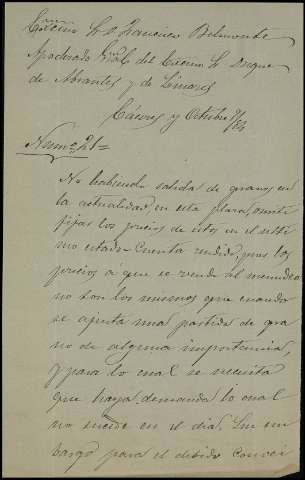 Excmo Sr D Francisco Belmonte
Apoderado Gral del Excmo Sr Duque
de Abrantes y de Linares
Cáceres y Octubre 9/84
Num.º 21=
No habiendo salida de granos en
la actualidad, en esta plaza, omití
fijar los precios de estos en el ulti
mo estado-Cuenta rendido, pues los
precios á que se vende al menudeo
no son los mismos que cuando
se ajusta una partida de gra
no de alguna importancia,
y para lo cual se necesita
que haya demanda lo cual
no sucede en el dia. Sin em
bargo para el debido conoci